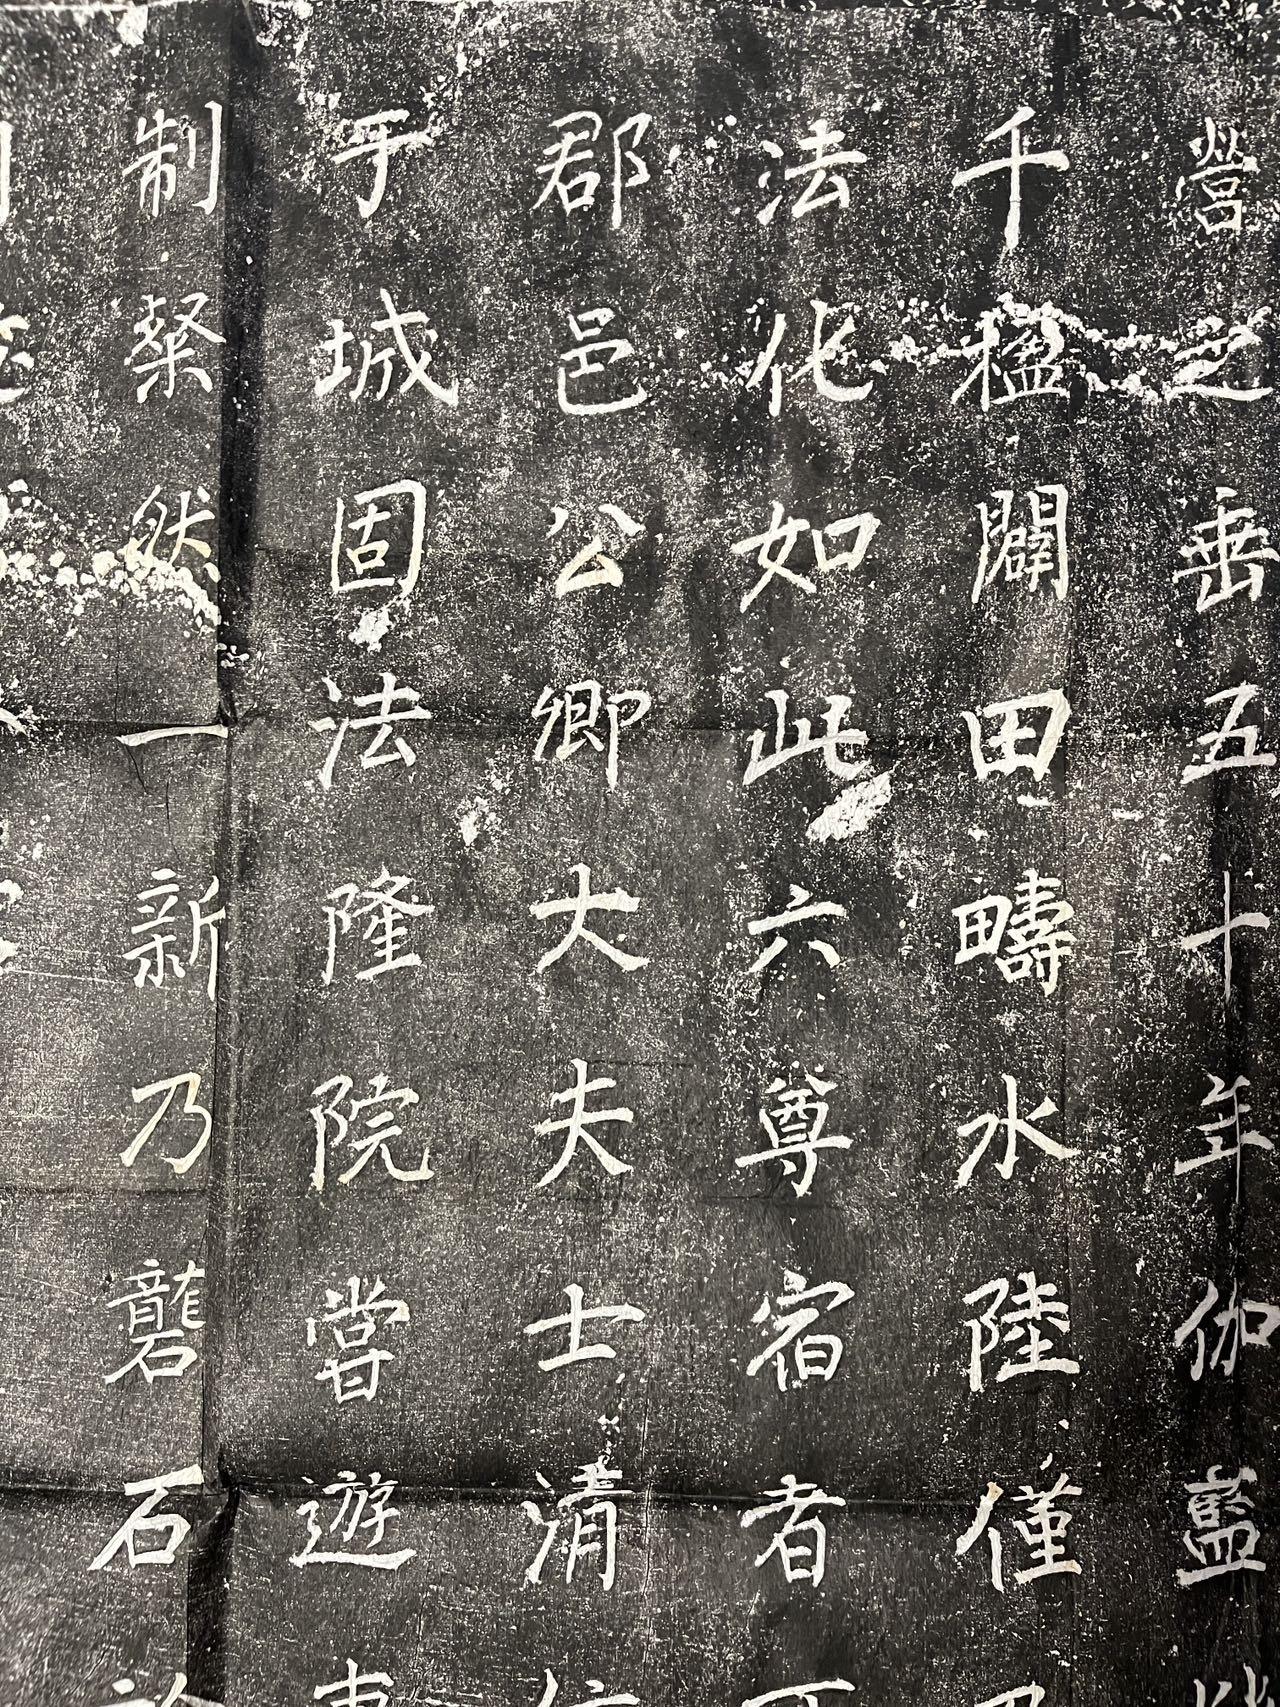 營之垂五十年伽藍
千楹闢田疇水陸僅
法化如此六尊宿者
郡邑公卿大夫士清
于城固法隆院嘗遊
制粲然一新乃礱石